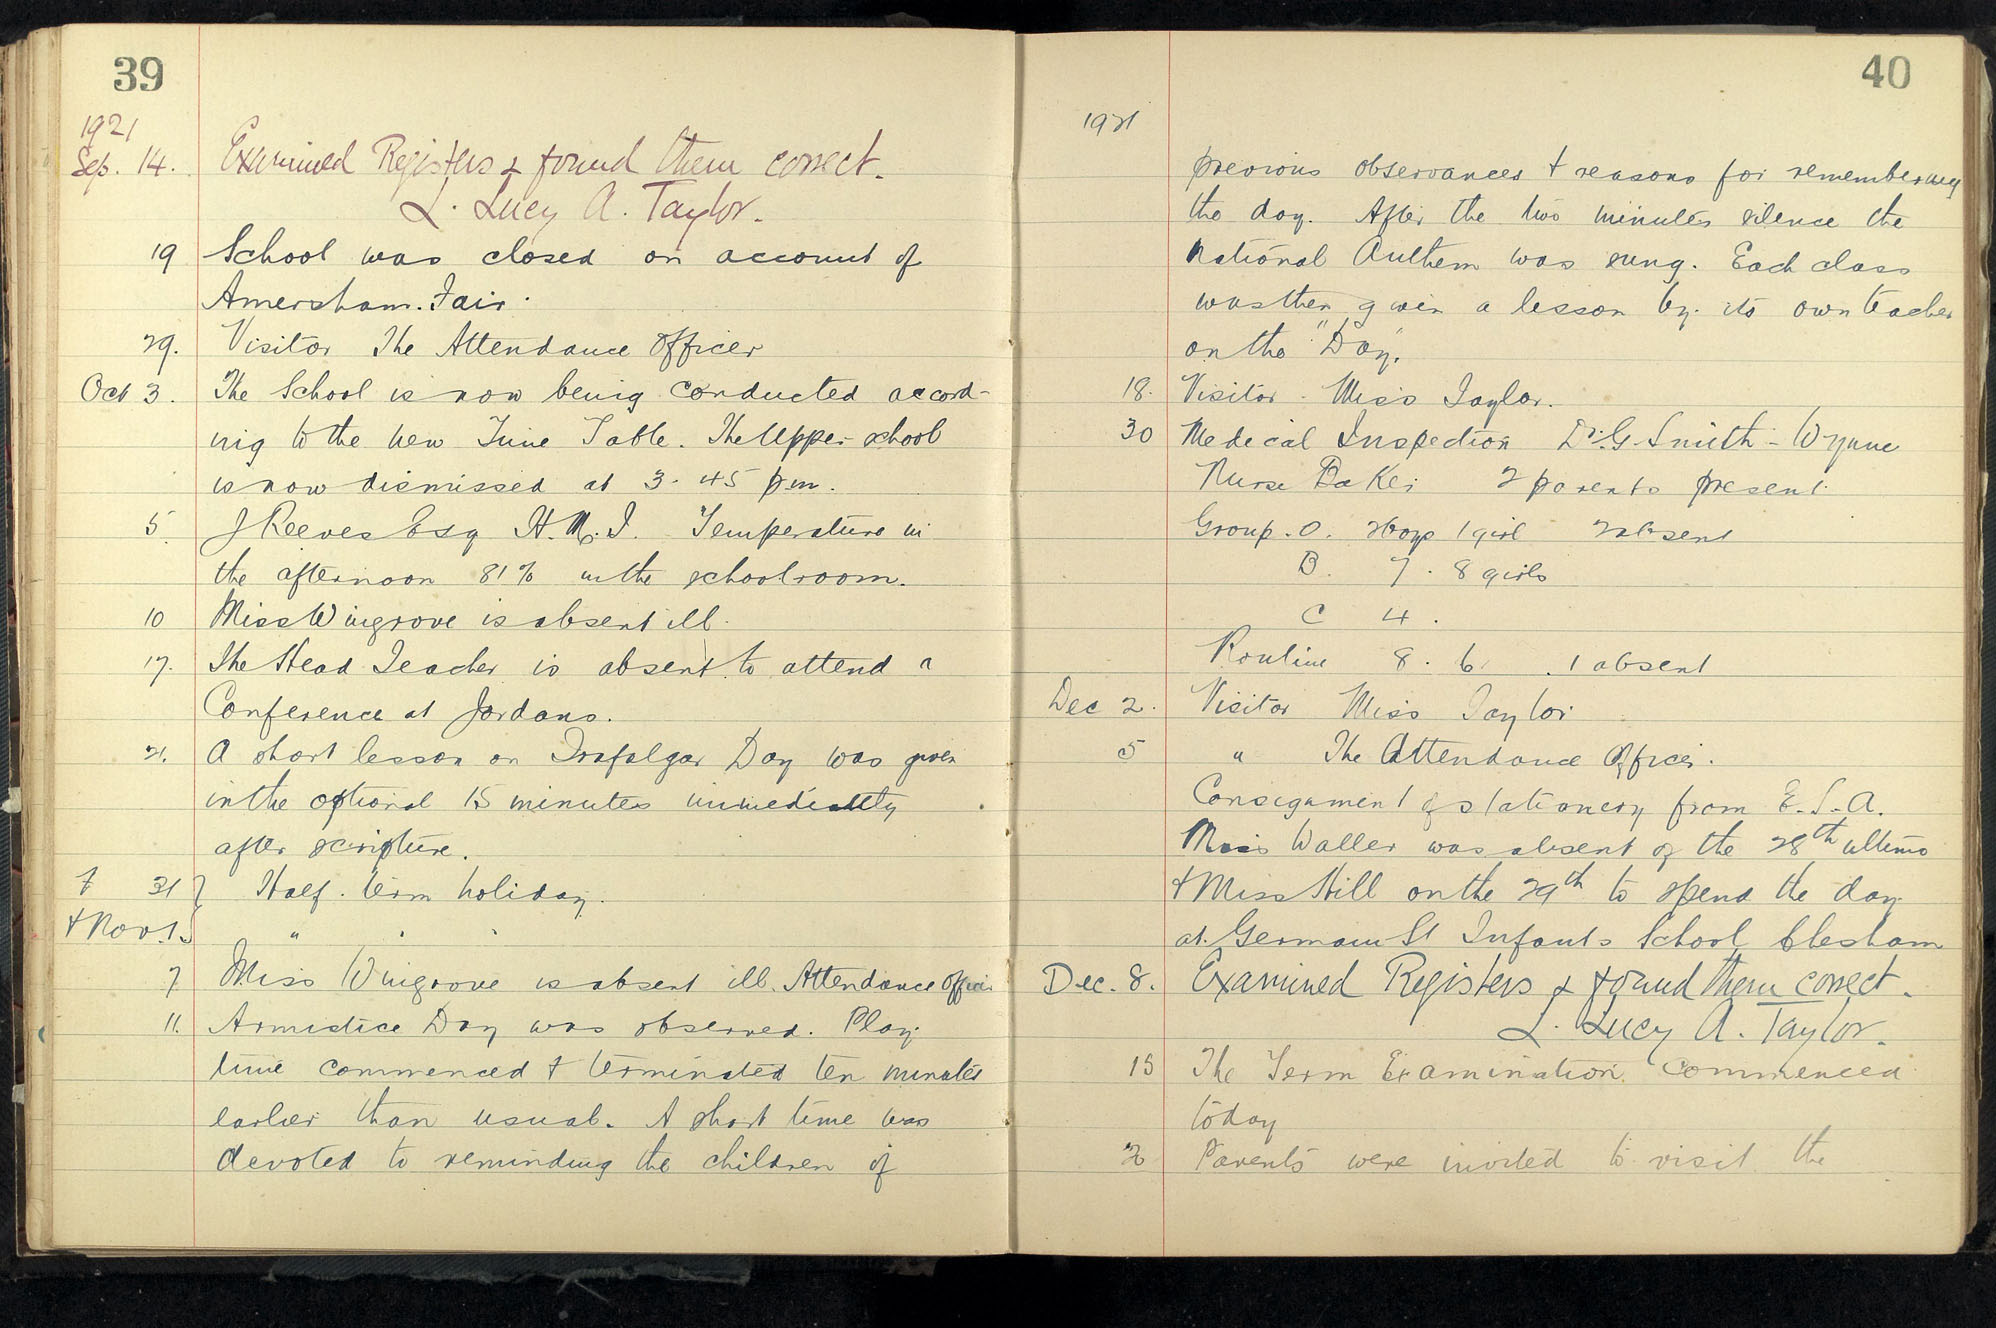 39
1921
Sep. 14. Examined Registers & found them correct.
L. Lucy A. Taylor.
19 School was closed on account of
Amersham. Fair.
29. Visitor The Attendance Officer
Oct 3. The School is now being conducted accord-
ing to the new Time Table. The Upper school
is now dismissed at 3.45 pm.
5. J Reeves Esq H.M.I. Temperature in
the afternoon 81% in the schoolroom.
10 Miss Wingrove is absent ill.
17. The Head Teacher is absent to attend a
Conference at Jordans.
21. A short lesson on Trafalgar Day was given
in the optional 15 minutes immediately
after scripture.
31 } Half. term holiday.
& Nov. 1. } " " "
7 Miss Wingrove is absent ill. Attendance Officer
11. Armistice Day was observed. Play
time commenced & terminated ten minutes
earlier than usual. A short time was
devoted to reminding the children of
40
1921
previous observances & reasons for remembering
the day. After the two minutes silence the
National Anthem was sung. Each class
was then given a lesson by its own teacher
on the "Day".
18. Visitor - Miss Taylor.
30 Medical Inspection Dr. G. Smith - Wynne
Nurse Baker 2 parents present.
Group. O. boys 1 girl 2 absent
B. 7 . 8 girls
C 4 .
Routine 8 . 6 . 1 absent
Dec 2. Visitor Miss Taylor
5 " The Attendance Officer.
Consignment of stationery from E.S.A.
Miss Waller was absent of the 28th ultimo
& Miss Hill on the 29th to spend the day
at Germain St Infants School Chesham
Dec. 8. Examined Registers & found them correct.
L. Lucy A. Taylor.
15 The Term Examination Commenced
today
Parents were invited to visit the